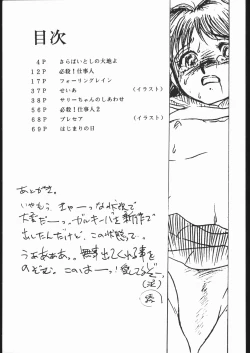 目次
4P さらばいとしの大地よ
12P 必殺!仕事人
17P フォーリングレイン
37P せいあ (イラスト)
38P サリーちゃんのしあわせ
56P 必殺!仕事人2
68P プレセア (イラスト)
69P はじまりの日
あとがき。
いやもう、きゃーっな状態で
大変だーっ。ガルキーバを新作で
出したんだけど、この状態って、
うああああ。無事出てくれる事を
のぞむっ。このはーっ!愛してるぞーっ